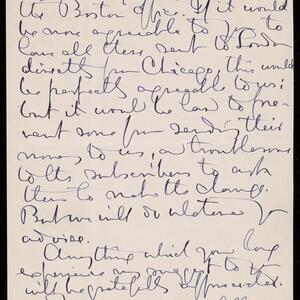 the Boston office. If it would
be more agreeable to you to
have all these sent to London
directly from Chicago, this would
be perfectly agreeable to us;
but it would be hard to pre-
vent some from sending their
money to us; or troublesome
to the subscribers to ask
them to make the change.
But we will do whatever you
advise.
Anything which your long
experience may suggest to you
will be gratefully appreciated.